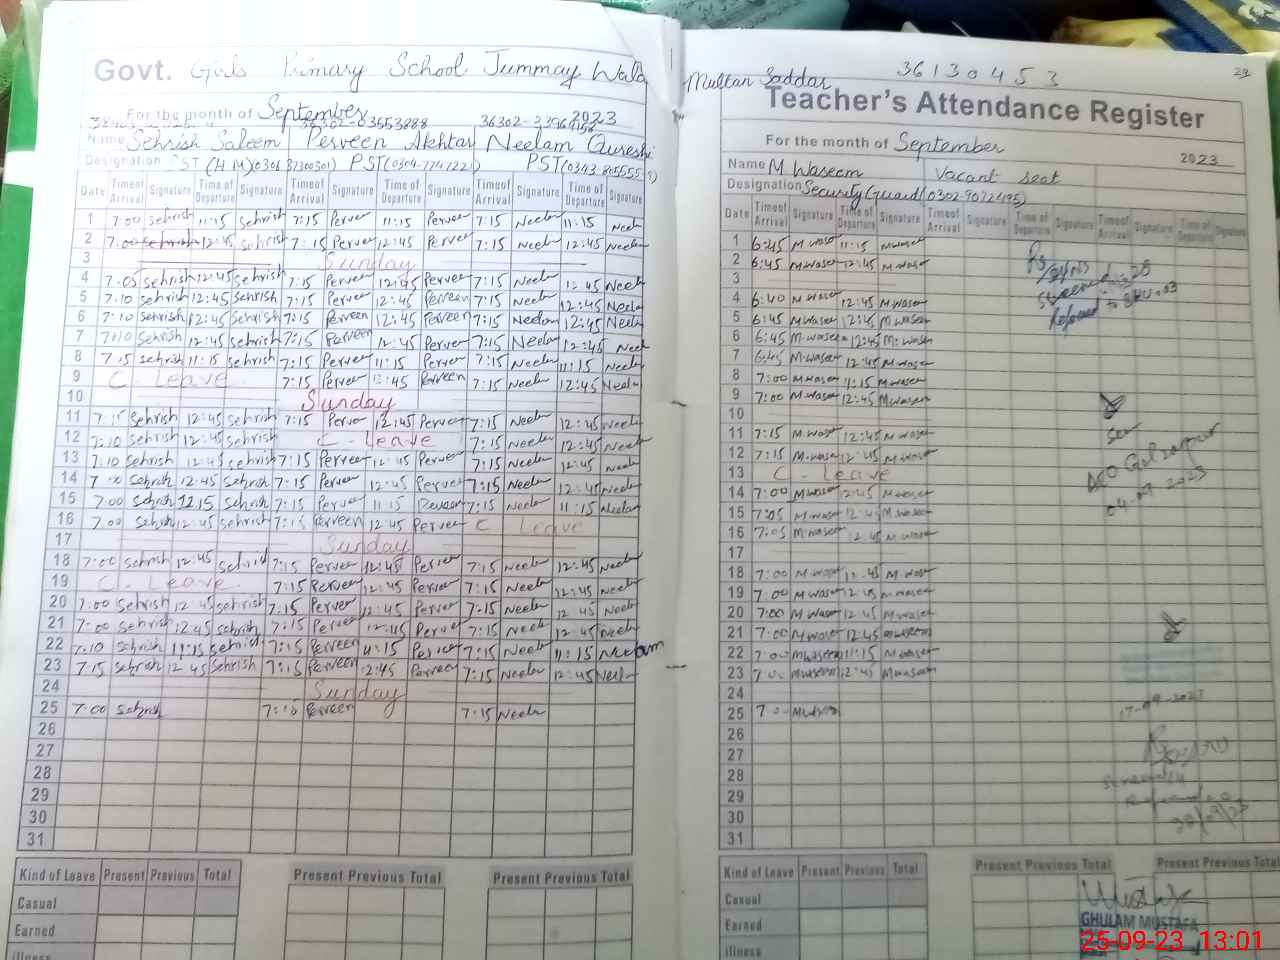 Govt. Girls Primary School Jummay Wala
For the month of September 2023
36302-03553888
Name Sehrish Saleem Perveen Akhtar Neelam Qureshi
Designation PST (H M) PST PST
Date Time of Arrival Signature Time of Departure Signature Time of Arrival Signature Time of Departure Signature Time of Arrival Signature Time of Departure Signature
1 7:00 sehrish 11:15 sehrish 7:15 Perveen 11:15 Perveen 7:15 Neelam 11:15 Neelam
2 7:00 sehrish 12:45 sehrish 7:15 Perveen 12:45 Perveen 7:15 Neelam 12:45 Neelam
3 Sunday
4 7:05 sehrish 12:45 sehrish 7:15 Perveen 12:45 Perveen 7:15 Neelam 12:45 Neelam
5 7:10 sehrish 12:45 Sehrish 7:15 Perveen 12:45 Perveen 7:15 Neelam 12:45 Neelam
6 7:10 sehrish 12:45 Sehrish 7:15 Perveen 12:45 Perveen 7:15 Neelam 12:45 Neelam
7 7:10 Sehrish 12:45 sehrish 7:15 Perveen 12:45 Perveen 7:15 Neelam 12:45 Neelam
8 7:15 sehrish 11:15 sehrish 7:15 Perveen 11:15 Perveen 7:15 Neelam 11:15 Neelam
9 C. Leave 7:15 Perveen 12:45 Perveen 7:15 Neelam 12:45 Neelam
10 Sunday
11 7:15 Sehrish 12:45 sehrish 7:15 Perveen 12:45 Perveen 7:15 Neelam 12:45 Neelam
12 7:10 sehrish 12:45 sehrish C. Leave 7:15 Neelam 12:45 Neelam
13 7:10 sehrish 12:45 sehrish 7:15 Perveen 12:45 Perveen 7:15 Neelam 12:45 Neelam
14 7:00 sehrish 12:45 Sehrish 7:15 Perveen 12:45 Perveen 7:15 Neelam 12:45 Neelam
15 7:00 Sehrish 12:15 Sehrish 7:15 Perveen 11:15 Perveen 7:15 Neelam 11:15 Neelam
16 7:00 Sehrish 12:45 sehrish 7:15 Perveen 12:45 Perveen C Leave
17 Sunday
18 7:00 sehrish 12:45 sehrish 7:15 Perveen 12:45 Perveen 7:15 Neelam 12:45 Neelam
19 C. Leave 7:15 Perveen 12:45 Perveen 7:15 Neelam 12:45 Neelam
20 7:00 Sehrish 12:45 sehrish 7:15 Perveen 12:45 Perveen 7:15 Neelam 12:45 Neelam
21 7:00 Sehrish 12:45 sehrish 7:15 Perveen 12:45 Perveen 7:15 Neelam 12:45 Neelam
22 7:10 Sehrish 11:15 sehrish 7:15 Perveen 11:15 Perveen 7:15 Neelam 11:15 Neelam
23 7:15 sehrish 12:45 Sehrish 7:15 Perveen 12:45 Perveen 7:15 Neelam 12:45 Neelam
24 Sunday
25 7:00 Sehrish 7:10 Perveen 7:15 Neelam
26
27
28
29
30
31
Kind of Leave Present Previous Total Present Previous Total Present Previous Total
Casual
Earned
Illness
Multan Saddar 36130453
Teacher's Attendance Register
For the month of September 2023
Name M Waseem Vacant seat
Designation Security Guard
Date Time of Arrival Signature Time of Departure Signature Time of Arrival Signature Time of Departure Signature Time of Arrival Signature Time of Departure Signature
1 6:45 M waseem 11:15 M waseem
2 6:45 M.waseem 12:45 M waseem
3
4 6:40 M waseem 12:45 M waseem
5 6:45 M waseem 12:45 M waseem
6 6:45 M.waseem 12:45 M.waseem
7 6:45 M.waseem 12:45 M.waseem
8 7:00 M waseem 11:15 M waseem
9 7:00 M waseem 12:45 M waseem
10
11 7:15 M.waseem 12:45 M waseem
12 7:15 M.waseem 12:45 M waseem
13 C. Leave
14 7:00 M waseem 12:45 M waseem
15 7:05 M waseem 12:45 M waseem
16 7:05 M.waseem 12:45 M waseem
17
18 7:00 M waseem 12:45 M.waseem
19 7:00 M waseem 12:45 M waseem
20 7:00 M waseem 12:45 M waseem
21 7:00 M waseem 12:45 M waseem
22 7:00 M waseem 11:15 M waseem
23 7:00 M waseem 12:45 M waseem
24
25
26
27
28
29
30
31
04-09 2023
17-09-2023
Kind of Leave Present Previous Total Present Previous Total Present Previous Total
Casual
Earned
Illness
GHULAM MUSTAFA
25-09-23 13:01